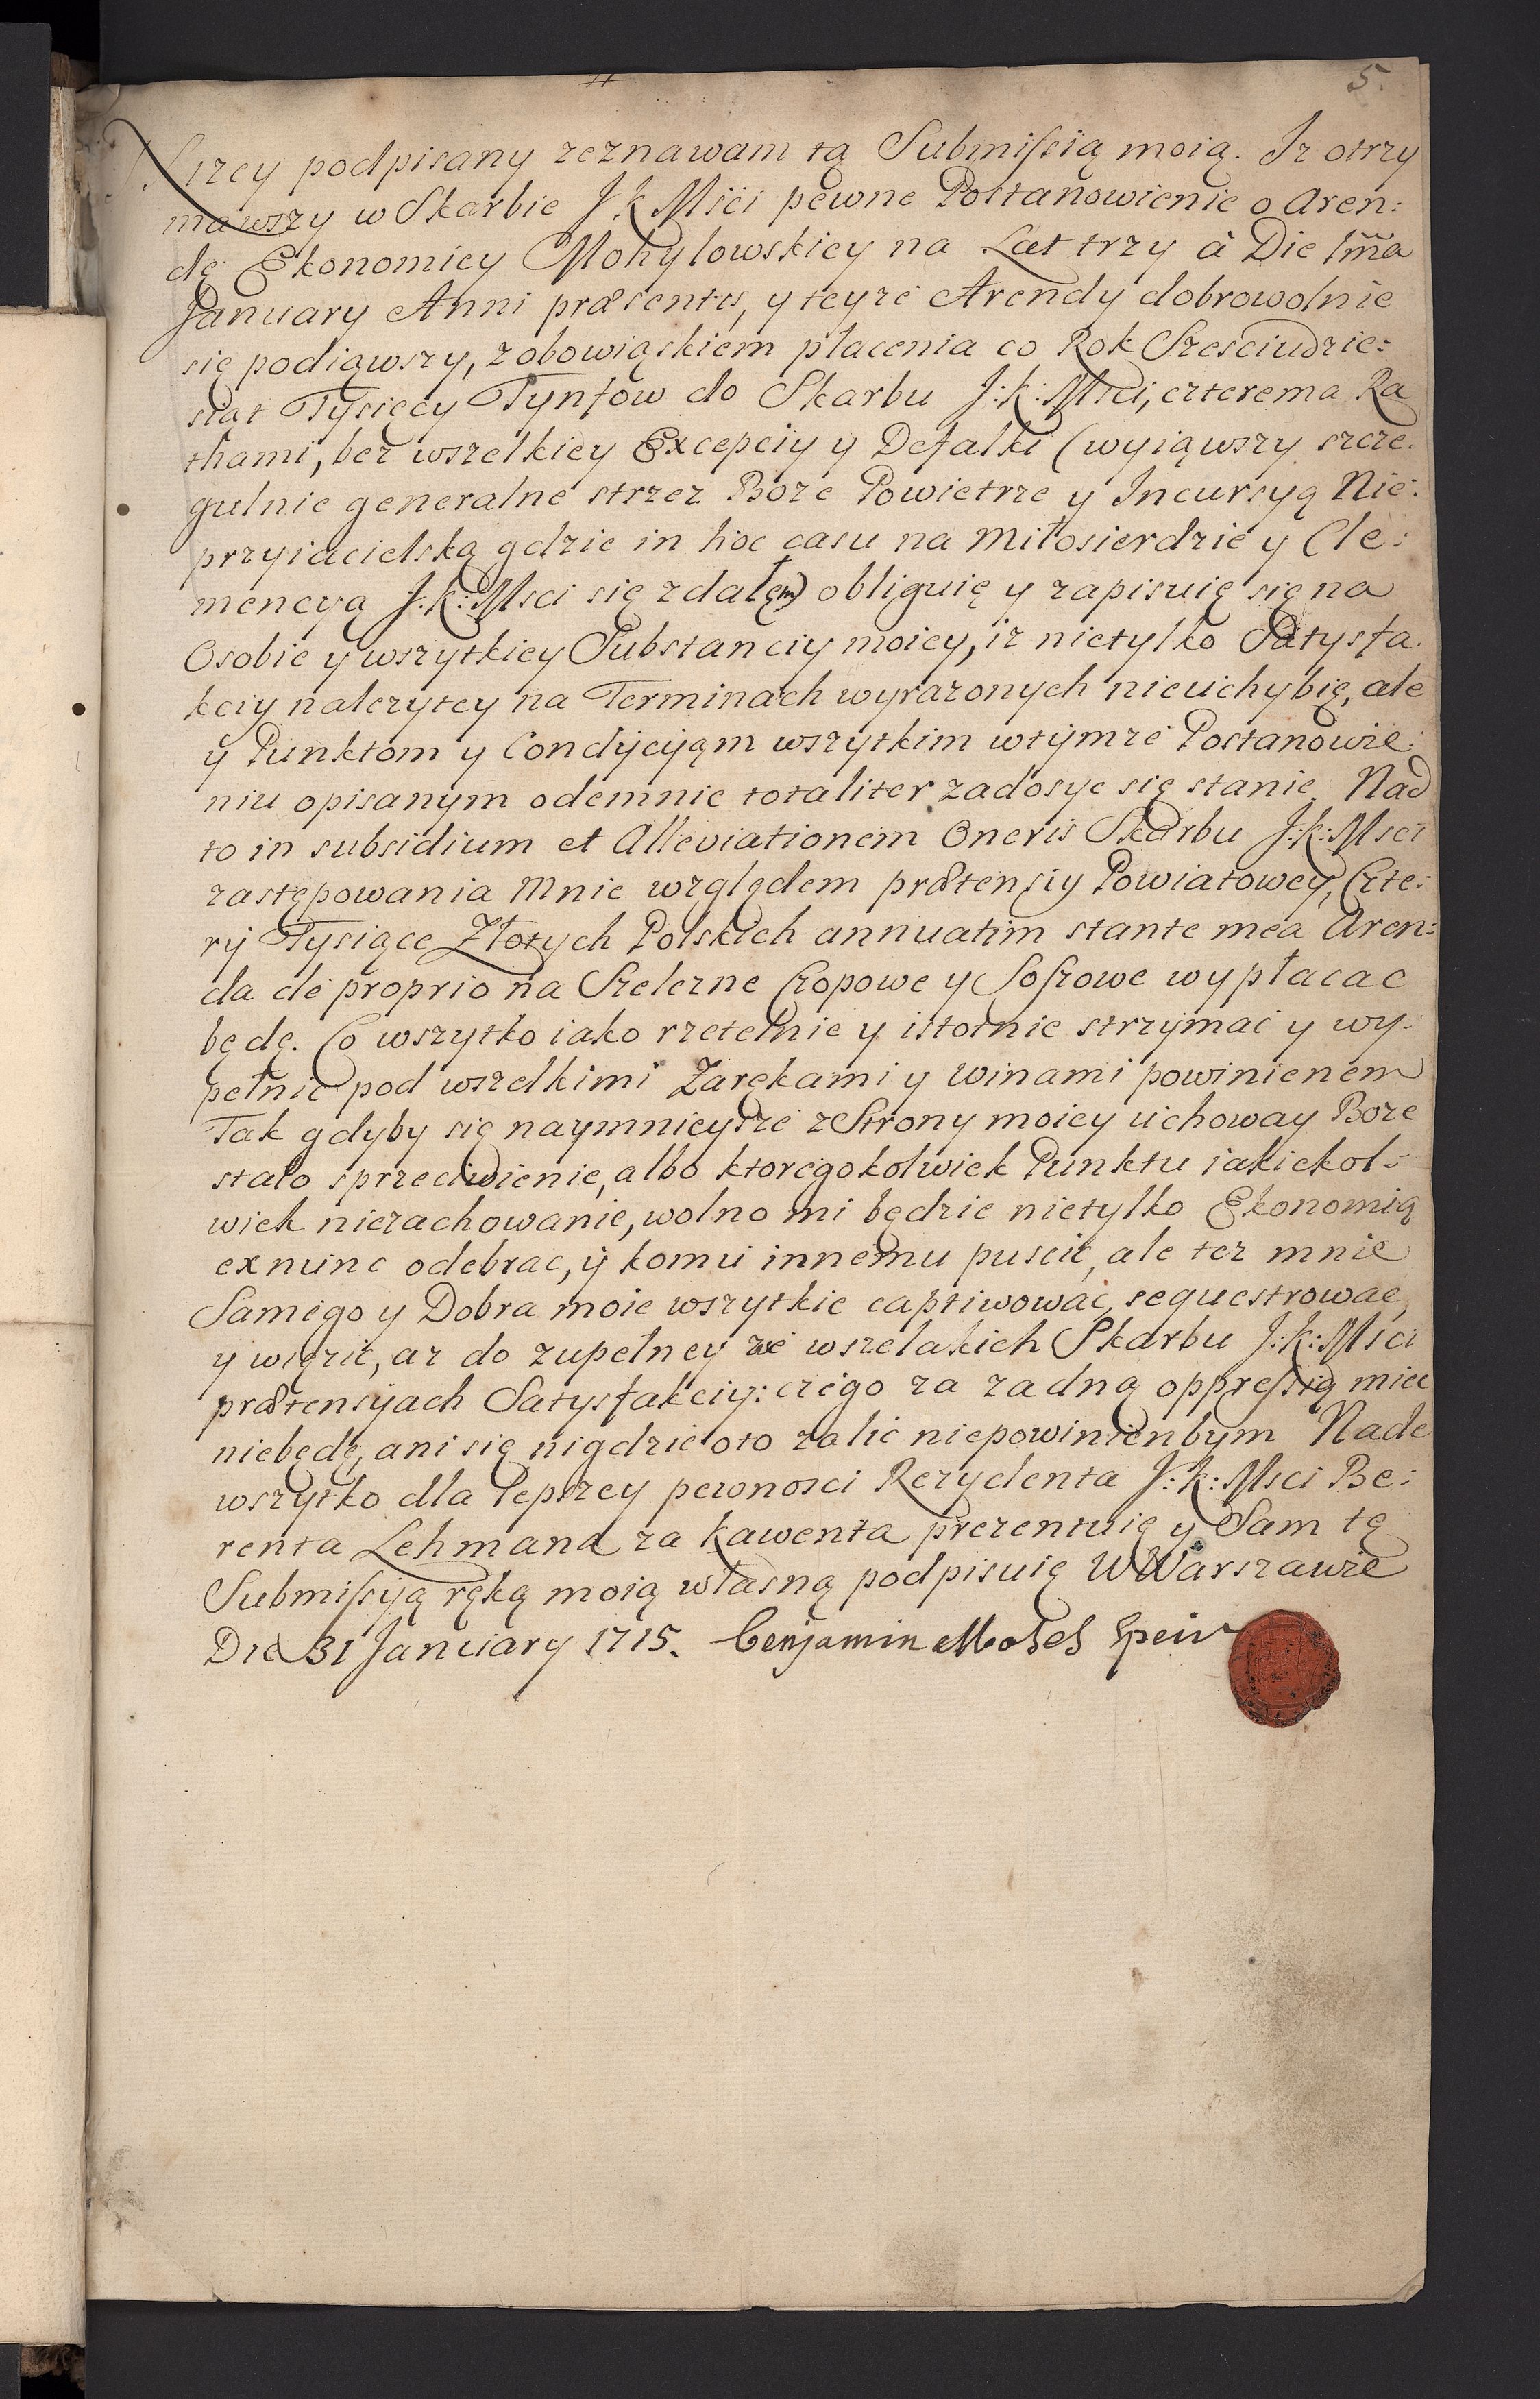 5.
Nizey podpisany zeznawam tą Submissią moią. Iz otrzy
mawszy w Skarbie J.K Msci pewne Postanowienie o Aren:
dę Ekonomiey Mohylowskiey na Lat trzy à Die 1ma
January Anni præsentis, y teyze Arendy dobrowolnie
się podiąwszy, z obowiąskiem płacenia co Rok Szesciudzie:
siąt Tysięcy Tynfow do Skarbu J:K:Msci, czterema Ra
thami, bez wszelkiey Excepciy y Defalki (wyiąwszy szcze:
gulnie generalne strzez Boze Powietrze y Incursyą Nie:
przyiacielską gdzie in hoc casu na Miłosierdzie y Cle:
mencyą J:K:Msci się zdałęm) obliguię y zapisuię się na
Osobie y wszytkiey Substanciy moiey, iz nietylko Satysfa:
kciy nalezytey na Terminach wyrazonych nieuchybię, ale
y Punktom y Condycyąm wszytkim wtymze Postanowie:
niu opisanym odemnie totaliter zadosyc się stanie. Nad
to in subsidium et Alleviationem Oneris Skarbu J:K:Msci
zastępowania Mnie względem prætensiy Powiatowey, Czte:
ry Tysiące Złotych Polskich annuatim stante mea Aren:
da de proprio na Szelezne Czopowe y Soszowe wypłacac
będę. Co wszytko iako rzetelnie y istotnie strzymac y wy:
pełnic pod wszelkimi Zarękami y winami powinienem
Tak gdyby się naymnieysze z Strony moiey uchoway Boze
stało sprzeciwienie, albo ktoregokolwiek Punktu iakiekol:
wiek niezachowanie, wolno mi będzie nietylko Ekonomią
ex nunc odebrac, y komu innemu puscic, ale tez mnie
Samego y Dobra moie wszytkie captiwowac, sequestrowac,
y więzic, az do zupełney we wszelakich Skarbu J:K:Msci
prætensyach Satysfakciy: czego za zadną oppressią miec
niebędę, ani się nigdzie oto zalic niepowinienbym Nade
wszytko dla lepszey pewnosci Rezydenta J:K:Msci Be:
renta Lehmana za kawenta prezentuię y Sam tę
Submissyą ręką moią własną podpisuię W Warszawie
Die 31 January 1715. Benjamin Moses